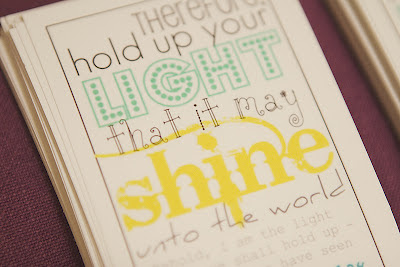 Therefore,
hold up your
LIGHT
that it may
shine
unto the world
behold, i am the light
shall hold up -
have seen